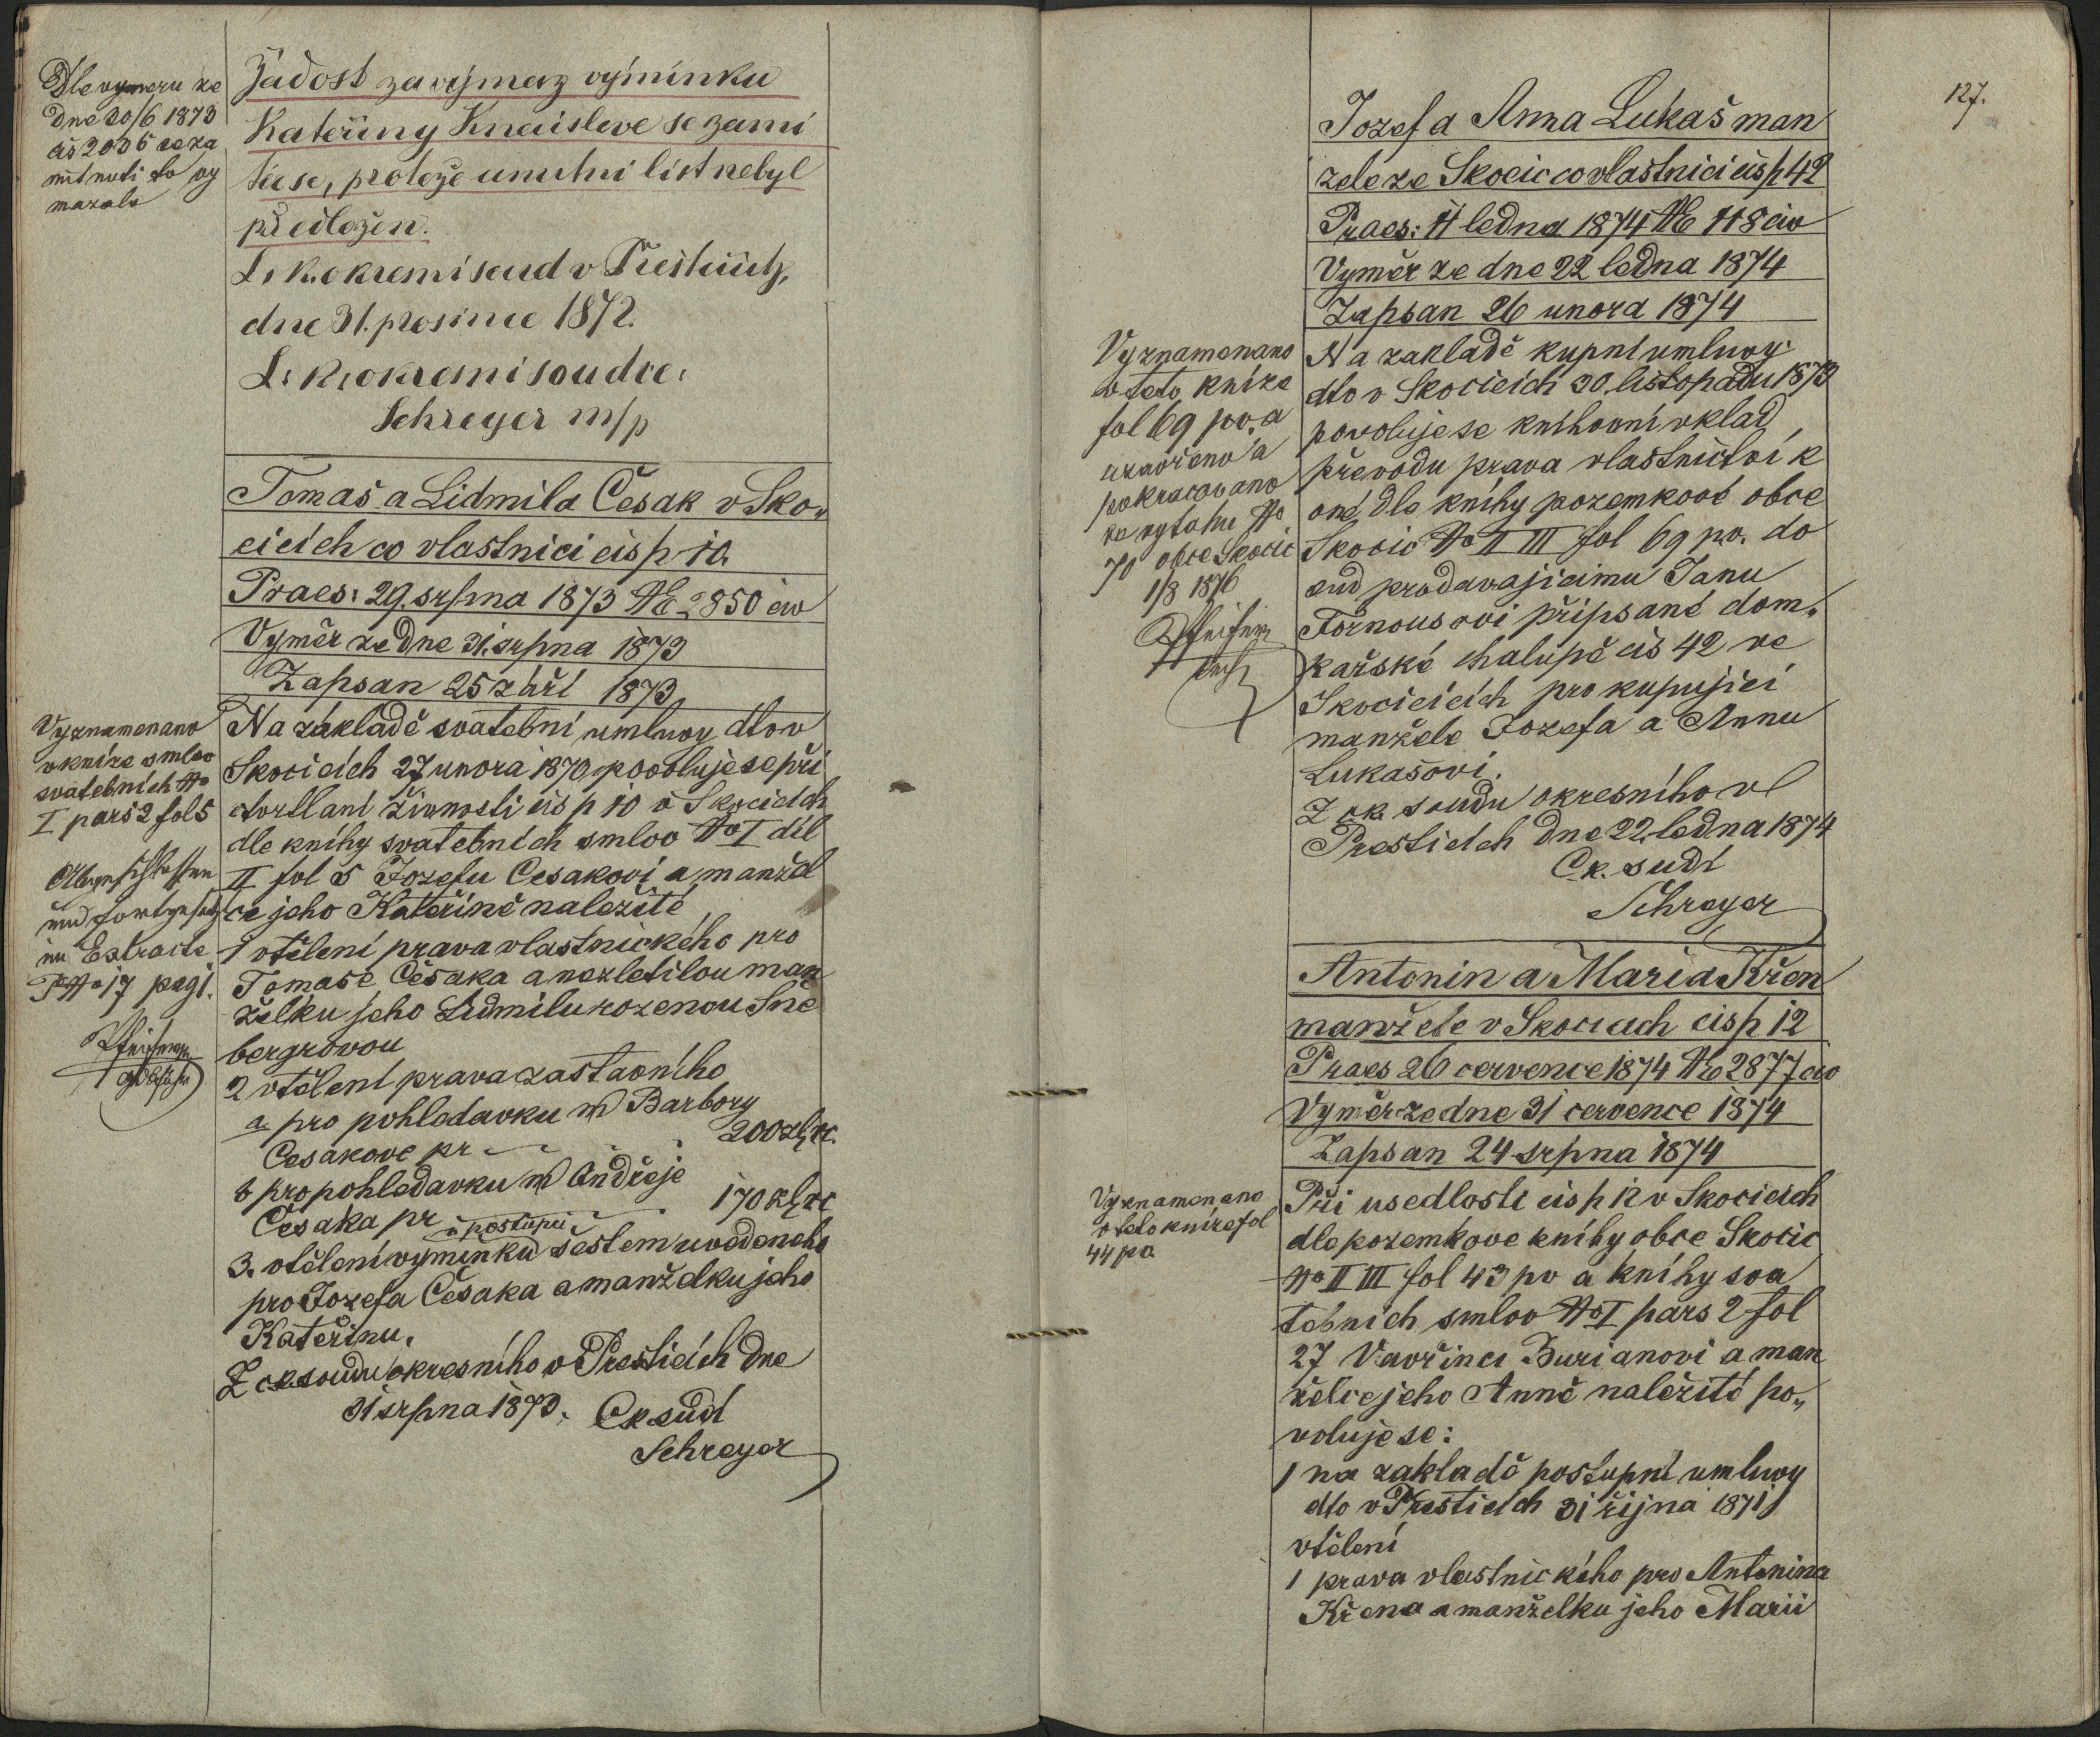 Dle vymeru ze
dne 20/6 1873
čis 2035 se za
mítnutí to vy
mazalo
Žádost za výmaz výminku
Kateřiny Kneislove se zami
tá se, protože umrtní list nebyl
předložen.
C. k. okresní soud v Přešticích,
dne 31. prosince 1872.
C. k. okresní soudce:
Schreyer m/p
Tomaš a Lidmila Česak v Sko„
cicích co vlastnici čis p 10.
Praes: 29. srpna 1873 NE 2850 civ
Vyměr ze dne 31. srpna 1873
Zapsan 25 září 1873
Vyznamenano
v knize smluv
svatebních No
I pars 2 fol 5
Abgeschlossen
und fortgesetzt
im Extracte
No 17 pag 1.
Na základě svatební umluvy dto v
Skocicích 27 unora 1870 povoluje se při
čtvrtlaní živnosti čis p 10 v Skocicích
dle knihy svatebních smluv No I díl
II fol 5 Jozefu Česakovi a manžel
ce jeho Kateřině naležité
1 vtělení prava vlastnického pro
Tomaše Česaka a nezletilou man
želku jeho Lidmilu rozenou Sne
bergrovou
2 vtělení prava zastavního
a pro pohledavku Barbory
Cesakove pr 200 zl rč.
b pro pohledavku Ondřeje
Česaka pr 170 zl rč
3. vtělení vyminku v postupu šestem uvedeneho
pro Jozefa Česaka a manželku jeho
Kateřinu.
Z ck soudu okresního v Presticích dne
31 srpna 1873. Ck sudí
Schreyer
127.
Jozef a Anna Lukaš man
zele ze Skocic co vlastnici čis p 42
Praes: 11 ledna 1874 NE 118 civ
Vyměr ze dne 22 ledna 1874
Zapsan 26 unora 1874
Vyznamenano
v teto knize
fol 69 po. a
uzavřeno a
pokracovano
ve vytahu No
70 obce Skocic
1/8 1876
Na zakladě kupní umluvy
dto v Skocicích 30. listopadu 1873
povoluje se knihovní vklad
převodu prava vlastnictví k
oné dle knihy pozemkové obce
Skocic No II III fol 69 po. do
sud prodavajicimu Janu
Fornousovi připsané dom„
kařské chalupě čis 42 ve
Skocicích pro kupující
manžele Jozefa a Annu
Lukašovi.
Z ck. soudu okresního v
Presticích dne 22 ledna 1874
Ck. sudí
Schreyer
Antonin a Maria Křen
manžele v Skocicích čis p 12
Praes 26 cervence 1874 NE 2877 civ
Vyměr ze dne 31 cervence 1874
Zapsan 24 srpna 1874
Vyznamenano
v teto knize fol
44 po.
Při usedlosti čis p 12 v Skocicích
dle pozemkove knihy obce Skocic
No II III fol 43 po a knihy sva
tebních smluv No I pars 2 fol
27 Vavřinci Burianovi a man
želce jeho Anně naležité po„
voluje se:
1 na zakladě postupní umluvy
dto v Presticích 31 října 1871
vtělení
1 prava vlastnického pro Antonina
Křena a manželku jeho Marii